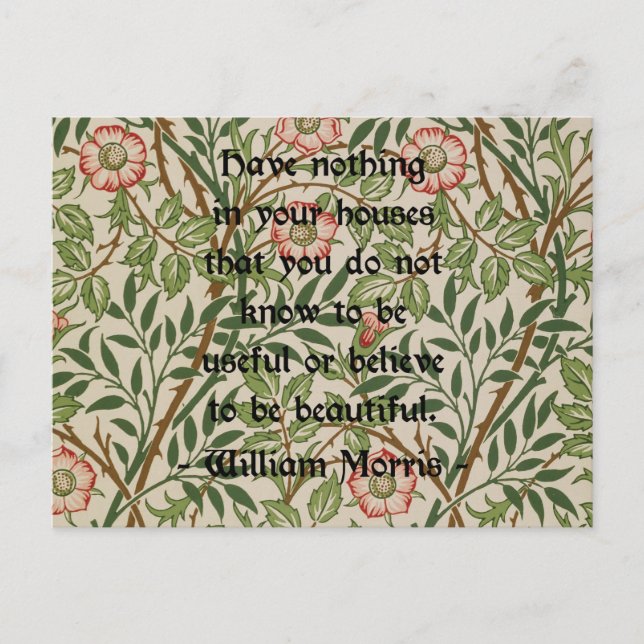 Have nothing
in your houses
that you do not
know to be
useful or believe
to be beautiful.
- William Morris -